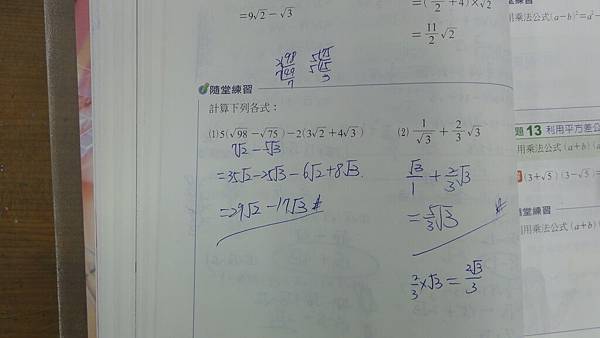 =9√2−√3
=(√2/2+4)×√2
=11/2√2
用乘法公式(a−b)²=a²−
2|98
7|49
7
5|75
5|15
3
隨堂練習
計算下列各式：
(1) 5(√98−√75)−2(3√2+4√3)
7√2−5√3
=35√2−25√3−6√2+8√3
=29√2−17√3#
(2) 1/√3+2/3√3
√3/1+2/3√3
=5/3√3 #
2/3×√3=2√3/3
題13 利用平方差公
用乘法公式(a+b)(
(3+√5)(3−√5)=
隨堂練習
用乘法公式(a+b)(a